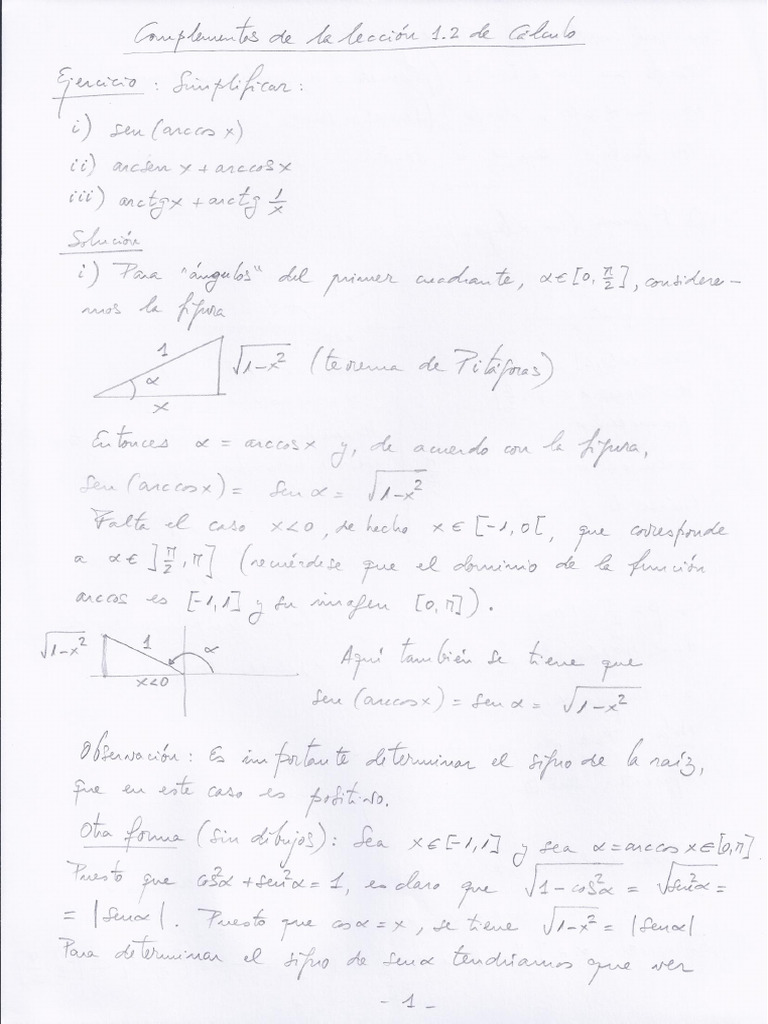 Complementos de la lección 1.2 de Cálculo
Ejercicio: Simplificar:
i) sen(arccos x)
ii) arcsen x + arccos x
iii) arctg x + arctg 1/x
Solución
i) Para "ángulos" del primer cuadrante, α∈[0, π/2], considere-
mos la figura
1 α x √1-x² (teorema de Pitágoras)
Entonces α = arccos x y, de acuerdo con la figura,
sen(arccos x) = sen α = √1-x²
Falta el caso x<0, de hecho x∈[-1,0[, que corresponde
a α∈]π/2,π] (recuérdese que el dominio de la función
arccos es [-1,1] y su imagen [0,π]).
√1-x² 1 α x<0
Aquí también se tiene que
sen(arccos x) = sen α = √1-x²
Observación: Es importante determinar el signo de la raíz,
que en este caso es positivo.
Otra forma (sin dibujos): Sea x∈[-1,1] y sea α=arccos x∈[0,π].
Puesto que cos²α+sen²α=1, es claro que √1-cos²α = √sen²α =
= |sen α|. Puesto que cos α = x, se tiene √1-x² = |sen α|
Para determinar el signo de sen α tendríamos que ver
- 1 -